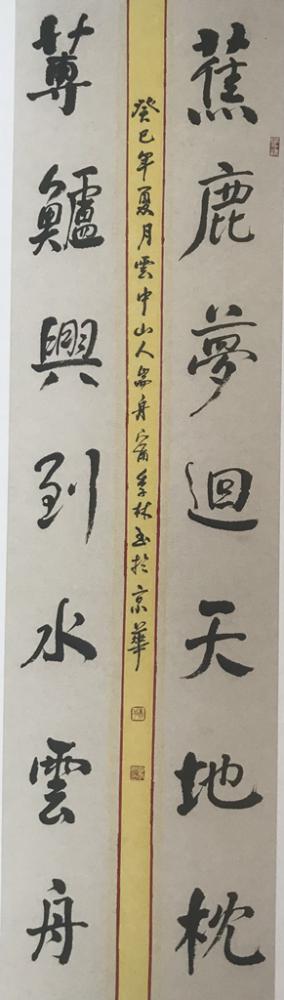 蕉鹿夢迴天地枕
蓴鱸興到水雲舟
癸巳年夏月雲中山人岛舟甯季林書於京華